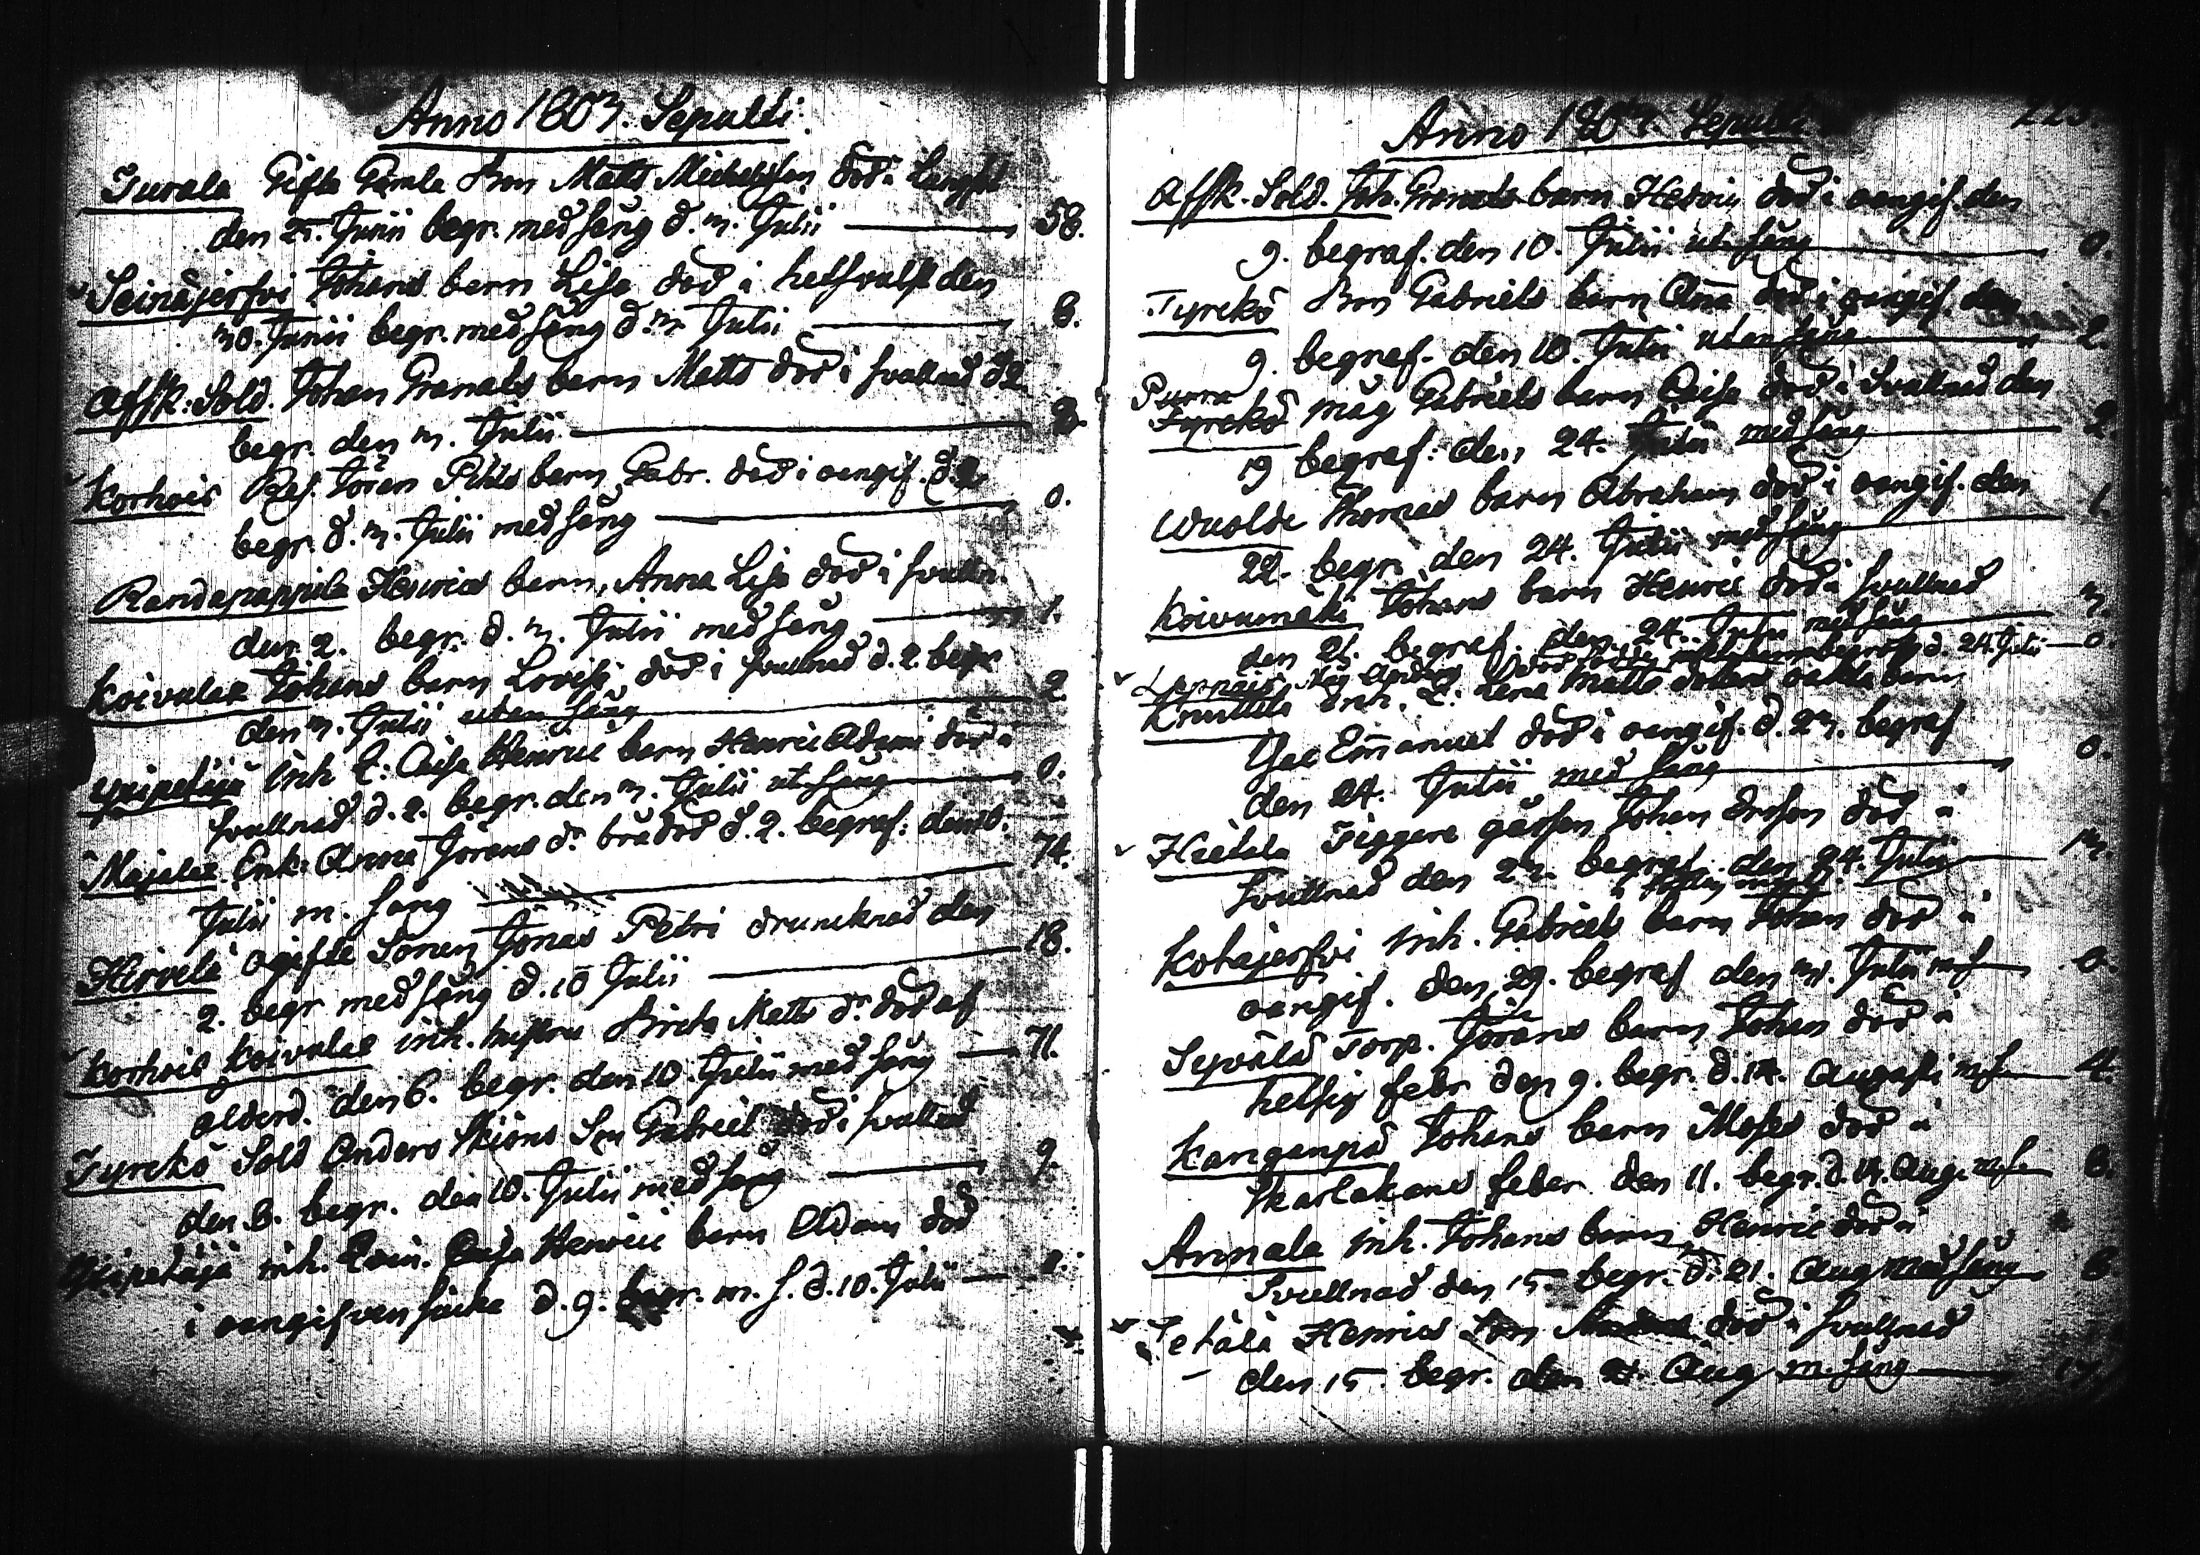 Anno 1803. Sepulti.
Turala Gifta Gamla Bon Matts Michelsson död i Lungsot
den 25. Junii begr. med sång d. 3. Julii 58.
Seinäjerfvi Johans barn Lisa död i helsvulst den
30. Junii begr. med sång d. 3. Julii 8.
Affsk. Sold. Johan Granats barn Matts död i svullnad d. 2.
begr. den 3. Julii
Korhois Jöran barn Gabr. död i oangif. d. 2.
begr. d. 3. Julii med sång 0.
Randapappila Henrics barn, Anna Lisa död i svulln.
den 2. begr. d. 3. Julii med sång 1.
Koivulax Johans barn Lovisa död i svullnad d. 2. begr.
den 3. Julii utan sång 2
inh. Caisa Henrici barn Henric Adam död i
svullnad d. 2. begr. den 3. Julii ut. sång 0.
Majalax Enk. Anna Jörans dr brådöd d. 2. begraf: den 10.
Julii m. sång 74.
Hirvelä ogifte Sonen Jonas Petri drunknad den
2. begr med sång d. 10 Julii 18.
Korhois Koivulax inh. hustru Birita Matts dr död af
ålderd. den 6. begr. den 10. Julii med sång 71.
Tyrckö Sold Anders Skiöns Son Gabriel död i svullnad
den 8. begr. den 10. Julii med sång 9.
inh. Caisa Henrici barn Adam död
i oangifven siuka d. 9. begr. m. s. d. 10. Julii 0.
Anno 1803. Sepulti 223.
Affsk. Sold. Joh. Granats barn Hedvig död i oangif. den
9. begraf. den 10. Julii ut. sång 0.
Tyrckö Bon Gabriels barn Anna död i oangif. den
9. begraf. den 10. Julii utan sång 2.
Purra
Tyrckö måg Gabriels barn Caisa död i Svullnad den
19 begraf. den 24. Julii med sång 2
Wuolde Thomas barn Abraham död i oangif. den
22. begr. den 24. Julii med sång 1.
Koivumäki Johans barn Henric död i svullnad
den 21. begraf. den 24. Julii med sång 3.
Leppäis Måg Anders begrofs d. 24. Julii 0.
Knuttila Enk. Lena Matts dotters oäkta barn
Emanuel död i oangif. d. 23. begraf
den 24. Julii med sång 0.
Hietala Tiggare gåssen Johan död i
svullnad den 23. begraf. den 24. Julii 13.
Kohäjerfvi inh. Gabriels barn Johan död i
oangif. den 29. begraf den 31. Julii m. s. 0.
Syvälä Torp. Jörans barn Johan död i
hetsig feber den 9. begr. d. 14. Augusti m. s. 4.
Kanganpä Johans barn Moses död i
Skarlakans feber den 11. begr. d. 14. Aug. m. s. 8.
Annala inh. Johans barn Henric död i
Svullnad den 15. begr. d. 21. Aug med sång 6.
Henrics Son död i svullnad
den 15. begr. den 21. Aug m. sång